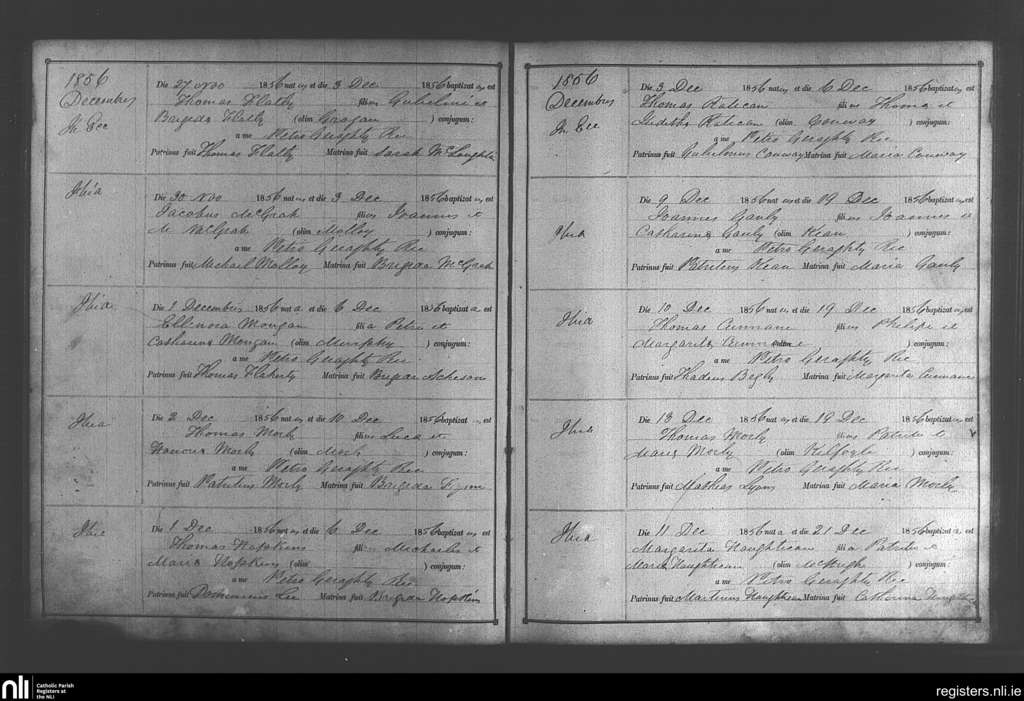 1856
Decembris
In Ecc
Die 27 Novo 1856 natus et die 3 Dec 1856 baptizatus est
Thomas Flatly filius Gulielmi et
Brigida Flatly (olim Gragan) conjugum:
a me Petro Geraghty Rec
Patrinus fuit Thomas Flatly Matrina fuit Sarah McLoughlin
Ibid
Die 30 Novo 1856 natus et die 3 Dec 1856 baptizatus est
Jacobus McGrah filius Joannis et
M McGrah (olim Molloy) conjugum:
a me Petro Geraghty Rec
Patrinus fuit Michael Molloy Matrina fuit Brigida McGrah
Ibid
Die 1 Decembris 1856 nata et die 6 Dec 1856 baptizata est
Ellenora Mongan filia Petri et
Catharina Mongan (olim Murphy) conjugum:
a me Petro Geraghty Rec
Patrinus fuit Thomas Flaherty Matrina fuit Brigida Acheson
Ibid
Die 2 Dec 1856 natus et die 10 Dec 1856 baptizatus est
Thomas Morly filius Luca et
Honoria Morly (olim) conjugum:
a me Petro Geraghty Rec
Patrinus fuit Patritius Morly Matrina fuit Brigida
Ibid
Die 1 Dec 1856 natus et die 6 Dec 1856 baptizatus est
Thomas Hopkins filius Michaelis et
Maria Hopkins (olim) conjugum:
a me Petro Geraghty Rec
Patrinus fuit Dominicus Lee Matrina fuit Brigida Hopkins
1856
Decembris
In Ecc
Die 3 Dec 1856 natus et die 6 Dec 1856 baptizatus est
Thomas Ratican filius Thoma et
Juditha Ratican (olim Conway) conjugum:
a me Petro Geraghty Rec
Patrinus fuit Gulielmus Conway Matrina fuit Maria Conway
Ibid
Die 9 Dec 1856 natus et die 19 Dec 1856 baptizatus est
Joannes Gauly filius Joannis et
Catharina Gauly (olim Kean) conjugum:
a me Petro Geraghty Rec
Patrinus fuit Patritius Kean Matrina fuit Maria Gauly
Ibid
Die 10 Dec 1856 natus et die 19 Dec 1856 baptizatus est
Thomas Cunnane filius Philipi et
Margarita Cunnane (olim) conjugum:
a me Petro Geraghty Rec
Patrinus fuit Thadeus Begly Matrina fuit Margarita Cunnane
Ibid
Die 13 Dec 1856 natus et die 19 Dec 1856 baptizatus est
Thomas Morly filius Patritii et
Maria Morly (olim Kilfoyle) conjugum:
a me Petro Geraghty Rec
Patrinus fuit Mathias Lyons Matrina fuit Maria Morly
Ibid
Die 11 Dec 1856 nata et die 21 Dec 1856 baptizata est
Margarita Naughtican filia Patritii et
Maria Naughtican (olim McHugh) conjugum:
a me Petro Geraghty Rec
Patrinus fuit Martinus Naughtican Matrina fuit Catherina
nli
Catholic Parish
Registers at
the NLI
registers.nli.ie